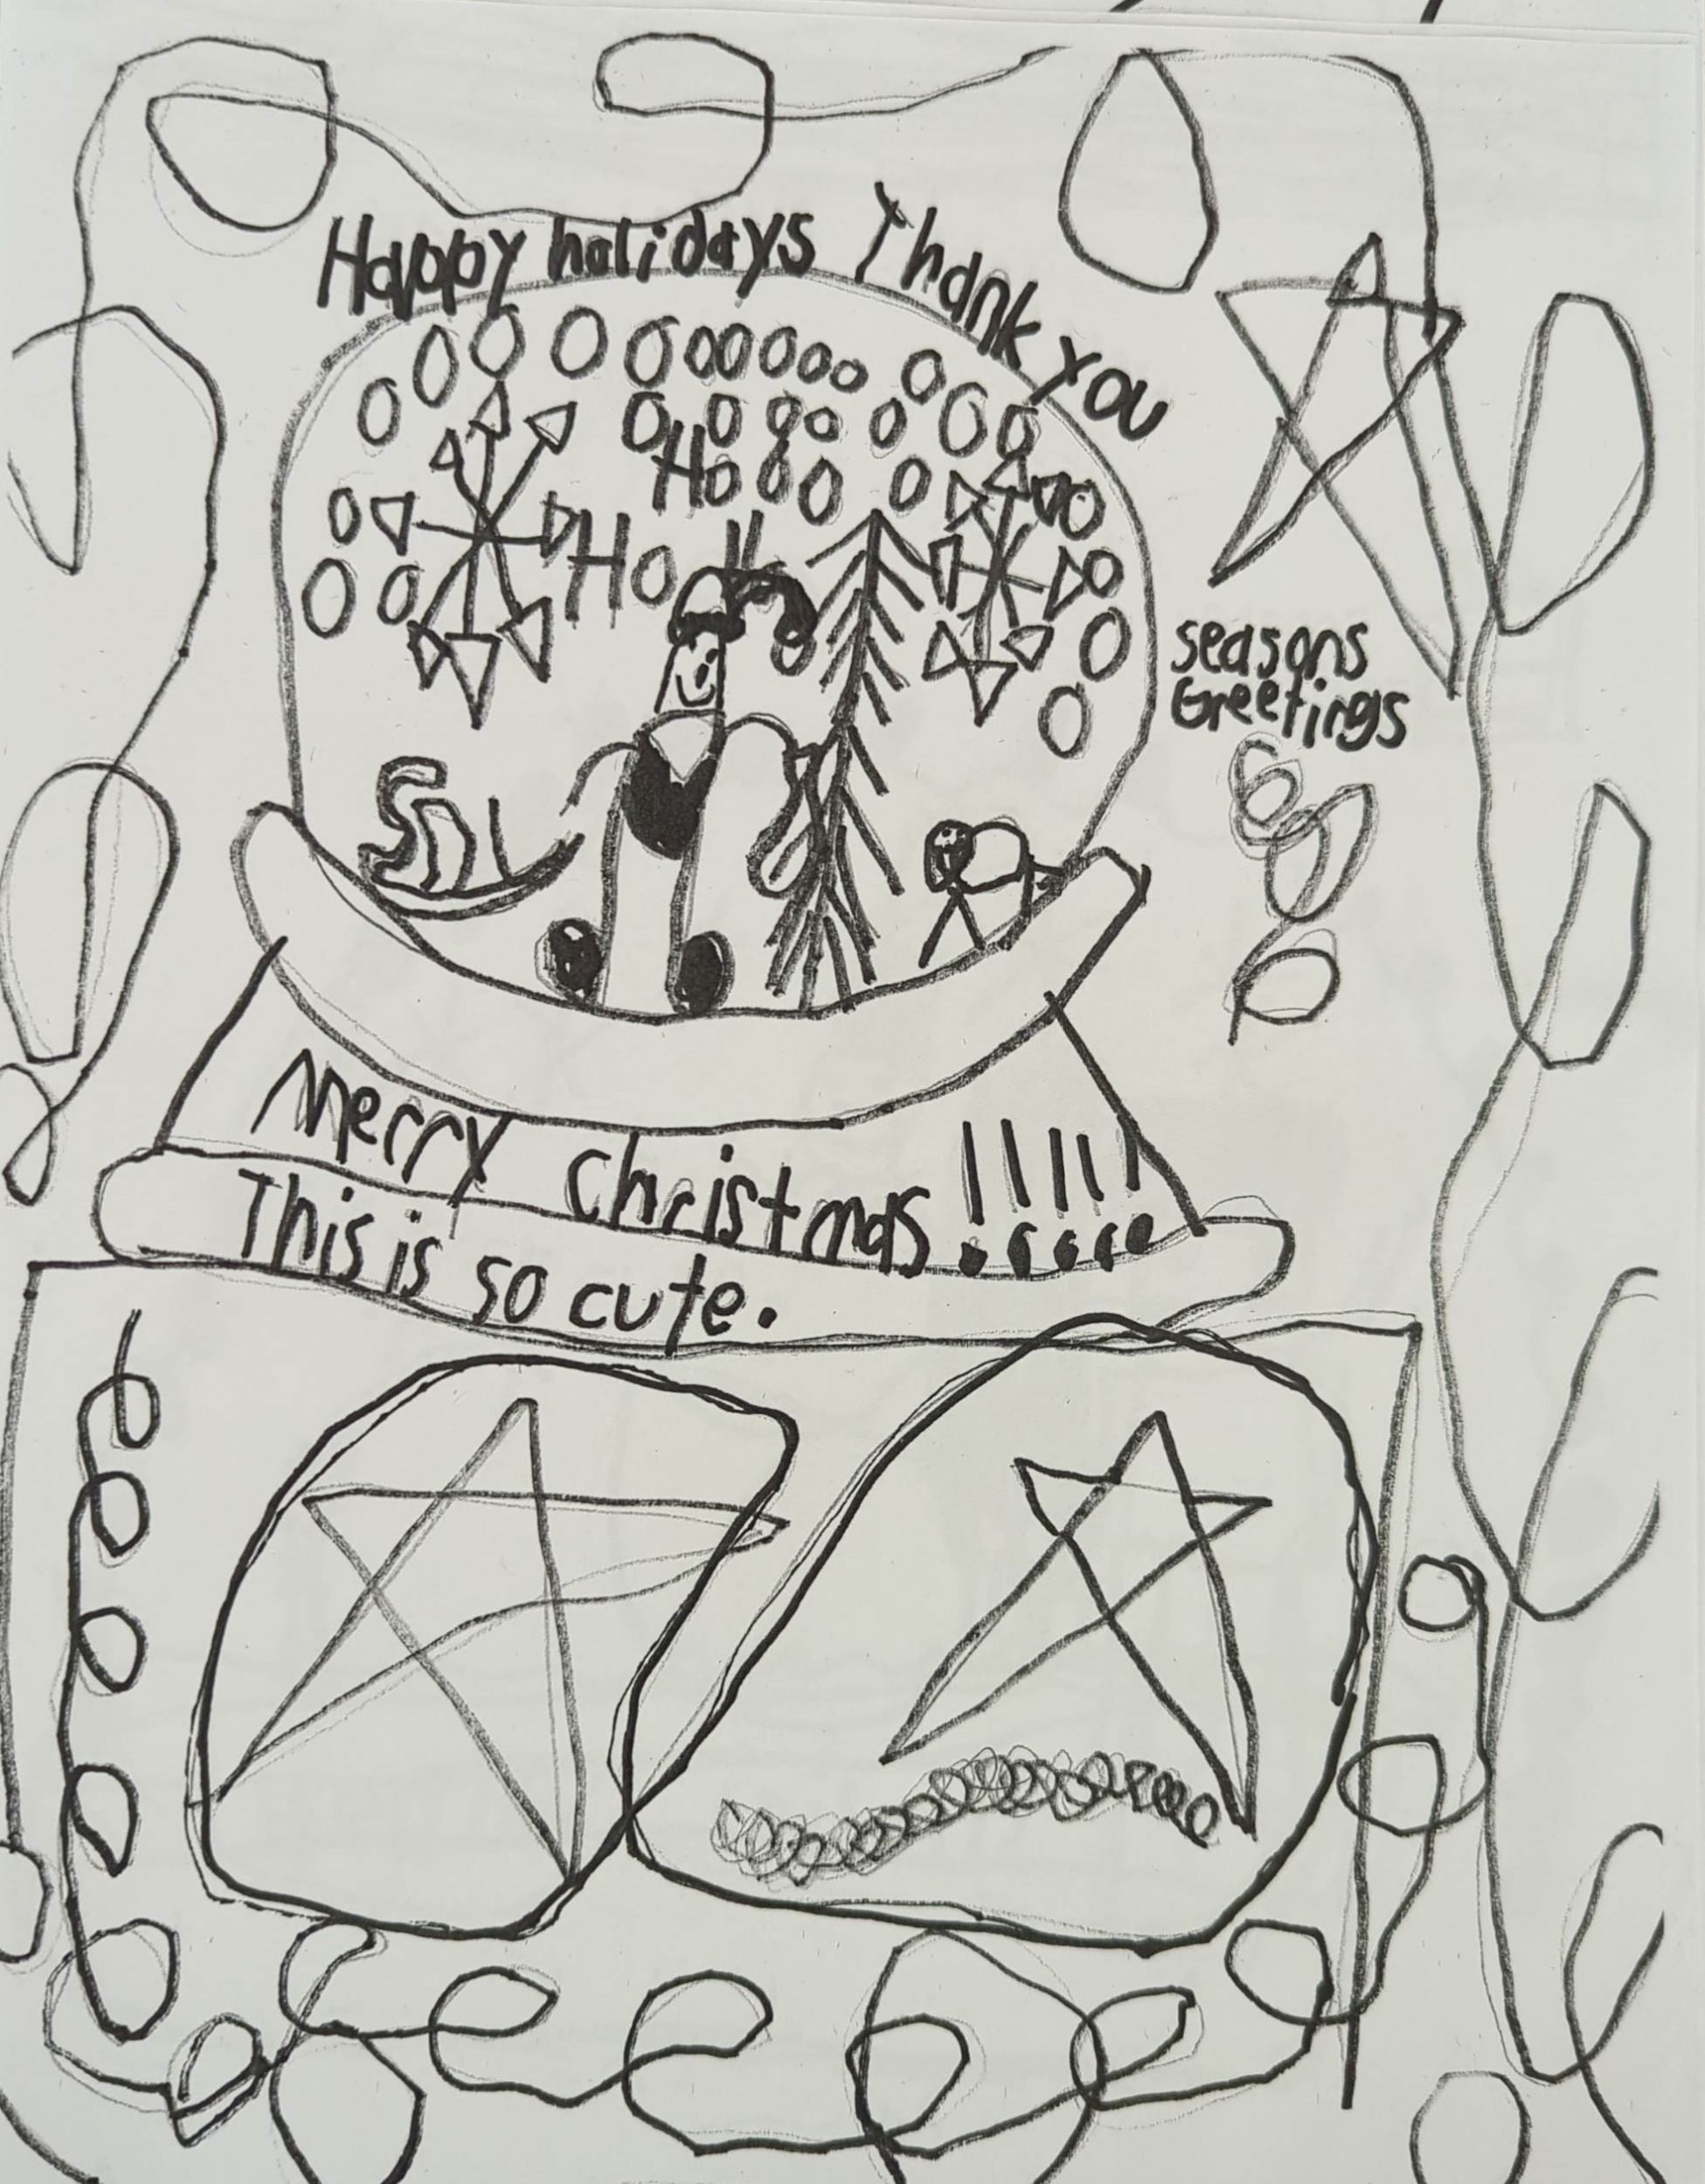 Happy holidays Thank you
Ho
Ho
seasons
Greetings
Merry christmas !!!!!
This is so cute.